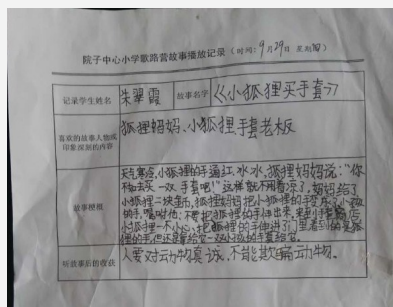 院子中心小学歌路营故事播放记录（时间：9月29日 星期四）
记录学生姓名 朱翠霞 故事名字 《小狐狸买手套》
喜欢的故事人物或印象深刻的内容
狐狸妈妈、小狐狸手套老板
故事梗概
天气寒冷，小狐狸的手通红，冰冰，狐狸妈妈说："你
去买一双手套吧！"这样就不用着凉了，妈妈给了
小狐狸一块，狐狸妈妈把小狐狸的手变了小孩
的手，嘱咐他：不要把狐狸的手伸出来，来到小手套店
小狐狸一不小心，把狐狸的手伸进了门里看到的是狐
狸的手，但还是给它一双小孩的手套给它。
听故事后的收获
人要对动物真诚，不能欺骗动物。